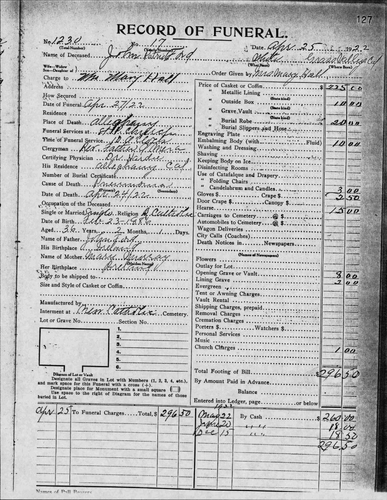 127
RECORD OF FUNERAL.
No. 1230 17 Date Apr 25 1922
(Total Number) (Yearly Number)
Name of Deceased John Ford White
(What Race) (Where Born)
Charge to Mrs Mary Hall Order Given by Mrs Mary Hall
Address
How Secured
Date of Funeral Apr 27/22
Residence
Place of Death Alleghany
Funeral Services at
Time of Funeral Service
Clergyman
Certifying Physician Dr
His Residence Alleghany Cal
Number of Burial Certificate
Cause of Death Pneumonia
Date of Death Apr 24/22
Occupation of the Deceased
Single or Married Single Religion Catholic
Date of Birth
Aged 36 Years 2 Months 1 Days.
Name of Father John Ford
His Birthplace Ireland
Name of Mother Mary Murray
Her Birthplace Ireland
Body to be shipped to
Size and Style of Casket or Coffin
Manufactured by
Interment at Catholic Cemetery.
Lot or Grave No. Section No.
1.
2.
3.
4.
5.
6.
Diagram of Lot or Vault
Designate all Graves in Lot with Numbers (1, 2, 3, 4, etc.), and mark space for this Funeral with a cross (+).
Designate place for Monument with a small square
Use space to the right of Diagram for the names of those buried in Lot.
Apr 25 To Funeral Charges Total, $ 296 50
Price of Casket or Coffin $ 225 00
Metallic Lining
Outside Box 10 00
Grave Vault
Burial Robe 20 00
Burial Slippers and Hose
Engraving Plate
Embalming Body (with Fluid) 10 00
Washing and Dressing
Shaving
Keeping Body on Ice
Disinfecting Rooms
Use of Catafalque and Drapery
" Folding Chairs
Candelabrum and Candles 3 00
Gloves $ Crape $ 2 50
Door Crape $ Canopy $
Hearse 15 00
Carriages to Cemetery @ $
Automobiles to Cemetery @ $
Wagon Deliveries
City Calls (Coaches)
Death Notices in Newspapers
(Names of Newspapers)
Flowers
Outlay for Lot
Opening Grave or Vault 8 00
Lining Grave 2 00
Evergreen
Tent or Awning Charges
Vault Rental
Shipping Charges, prepaid
Removal Charges
Cremation Charges
Porters $ Personal Watchers $
Music
Church Charges 1 00
Total Footing of Bill $ 296 50
By Amount Paid in Advance
Balance
Entered into Ledger, page or below.
1922
May 22 By Cash $ 260 00
" " 18 00
Dec 15 " " 18 50
296 50